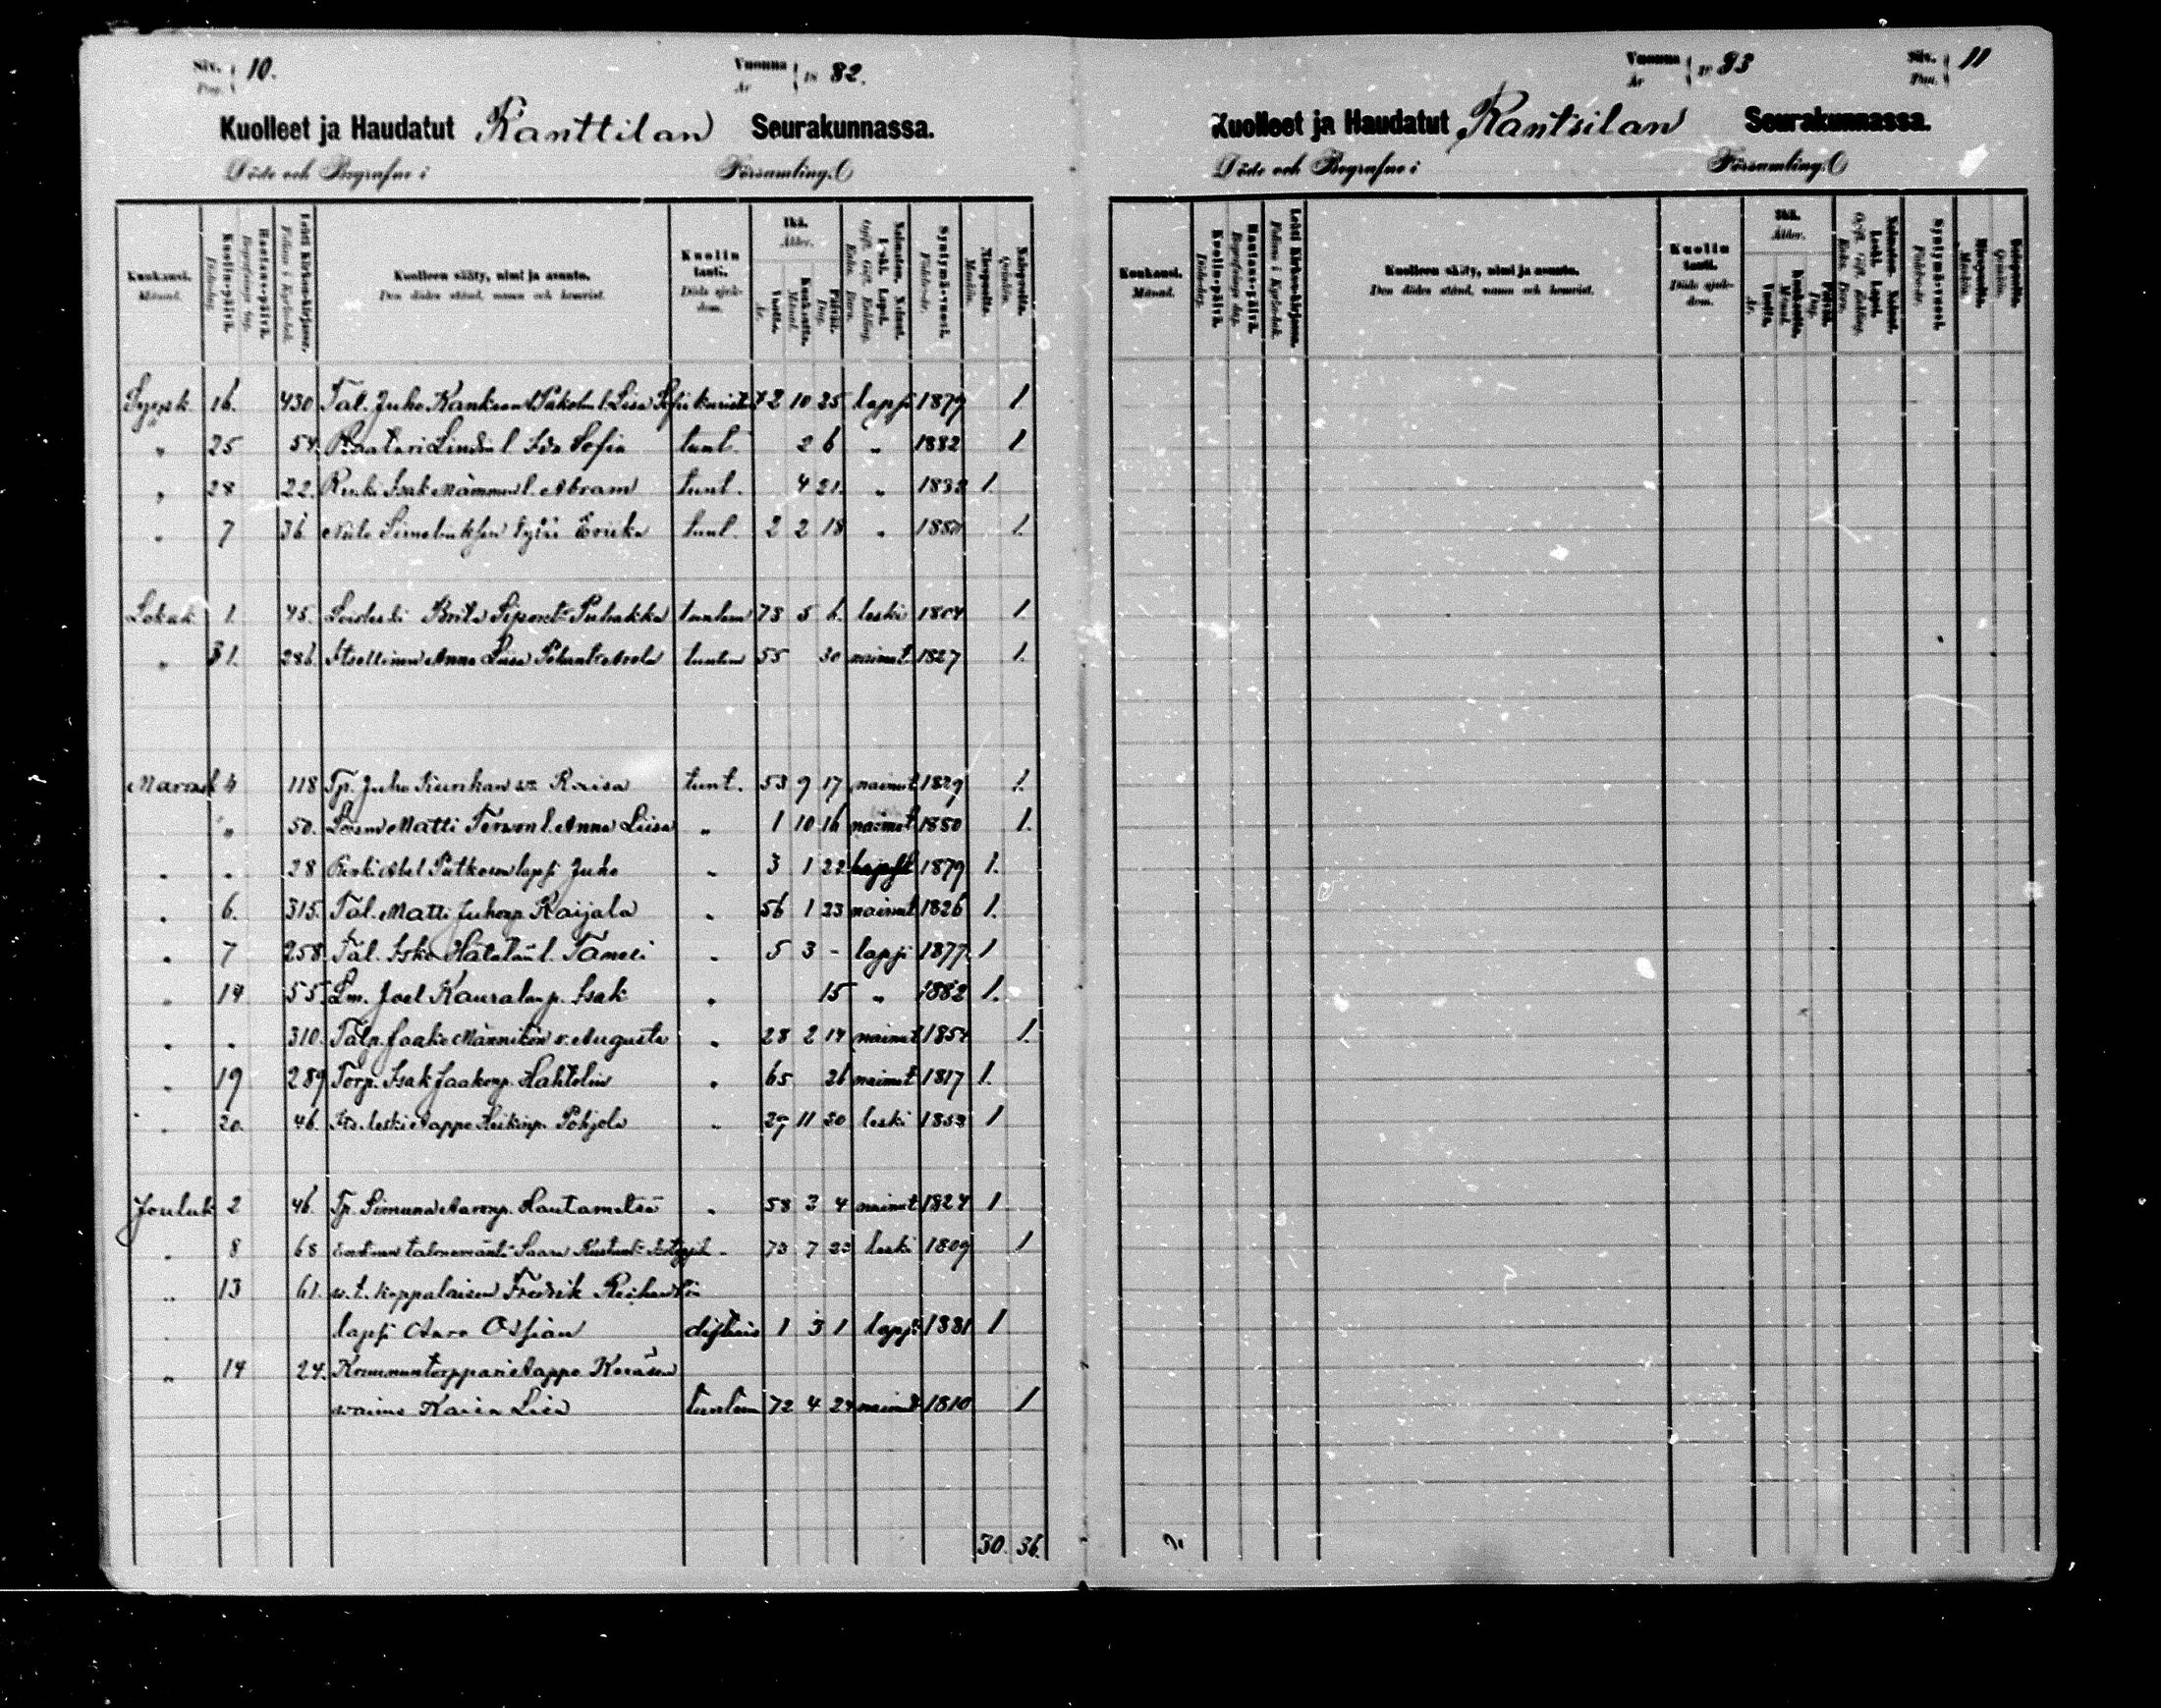 Siv. Pag. 10.
Vuonna År 18 82.
Kuolleet ja Haudatut Ranttilan Seurakunnassa.
Döde och Begrafne i Församling.
Kuukausi. Månad.
Kuolin-päivä. Dödsdag.
Hautaus-päivä. Begrafnings dag.
Lehti Kirkon-kirjassa. Folium i Kyrko-bok.
Kuolleen sääty, nimi ja asunto. Den dödes stånd, namn och hemvist.
Kuolin tauti. Döds sjuk-dom.
Ikä. Ålder.
Vuotta. År.
Kuukautta. Månad.
Päivää. Dag.
Naimaton. Nainut. Leski. Lapsi. Ogift. Gift. Enkling. Enka. Barn.
Syntymä-vuosi. Födelse-år.
Miespuolta. Mankön.
Naispuolta. Qvinkön.
Syysk. 16. 430 Tal. Juho Kankaan Liisa Sofia 2 10 25 lapsi 1879 1
" 25 54. Lindin l. Ida Sofia tunt. 2 6 " 1882 1
" 28 22. Renki Isak Mämmin l. Abram tunt. 4 21. " 1832 1.
" 7 36 Erika tunt. 2 2 18 " 1880 1.
Lokak 1. 45. Brita Puhakka tuntem 78 5 6. leski 1804 1.
" 31. 286. Itsellinen Anna Liisa tuntem 55 30 nainut. 1827 1.
Marrask 4 118 Tp. Juho Kurikan w: Raisa tunt. 53 9 17 nainut 1829 1.
" 50. Matti Terwon l. Anna Liisa " 1 10 16 nainut 1880 1.
" " 28 Renki Abel Putkosen lapsi Juho " 3 1 22 lapsi 1879 1.
" 6. 315. Tal. Matti Juhonp. Raijala " 56 1 23 nainut 1826 1.
" 7 258. Tal. Isko l. Taneli " 5 3 - lapsi 1877. 1
" 14 55 Lm. Joel Kauralan p. Isak " 15 " 1882 1.
" " 310. Talp. Jaako Männikön v. Augusta " 28 2 14 nainut 1854 1.
" 19 289 Torp. Isak Jaakonp. Hahtolin " 65 26 nainut 1817 1.
" 20. 46. leski Aappo Heikinp. Pohjola " 29 11 20 leski 1853 1
Jouluk 2 46. Tp. Simuna Aaronp. Hautametsä " 58 3 4 nainut 1824 1.
" 8 68 Entinen talonemäntä Saara " 73 7 23 leski 1809 1
" 13 61. w.t. kappalaisen Fredrik
lapsi Aaro Ossian difteria 1 3 1 lapsi 1881 1
" 14 24. Kommuntorppari Aappo Keräsen
waimo Kaisa Lisa tuntem 72 4 24 nainut 1810 1
30. 36.
Vuonna År 18 83
Siv. Pag. 11
Kuolleet ja Haudatut Rantsilan Seurakunnassa.
Döde och Begrafne i Församling.
Kuukausi. Månad.
Kuolin-päivä. Dödsdag.
Hautaus-päivä. Begrafnings dag.
Lehti Kirkon-kirjassa. Folium i Kyrko-bok.
Kuolleen sääty, nimi ja asunto. Den dödes stånd, namn och hemvist.
Kuolin tauti. Döds sjuk-dom.
Ikä. Ålder.
Vuotta. År.
Kuukautta. Månad.
Päivää. Dag.
Naimaton. Nainut. Leski. Lapsi. Ogift. Gift. Enkling. Enka. Barn.
Syntymä-vuosi. Födelse-år.
Miespuolta. Mankön.
Naispuolta. Qvinkön.